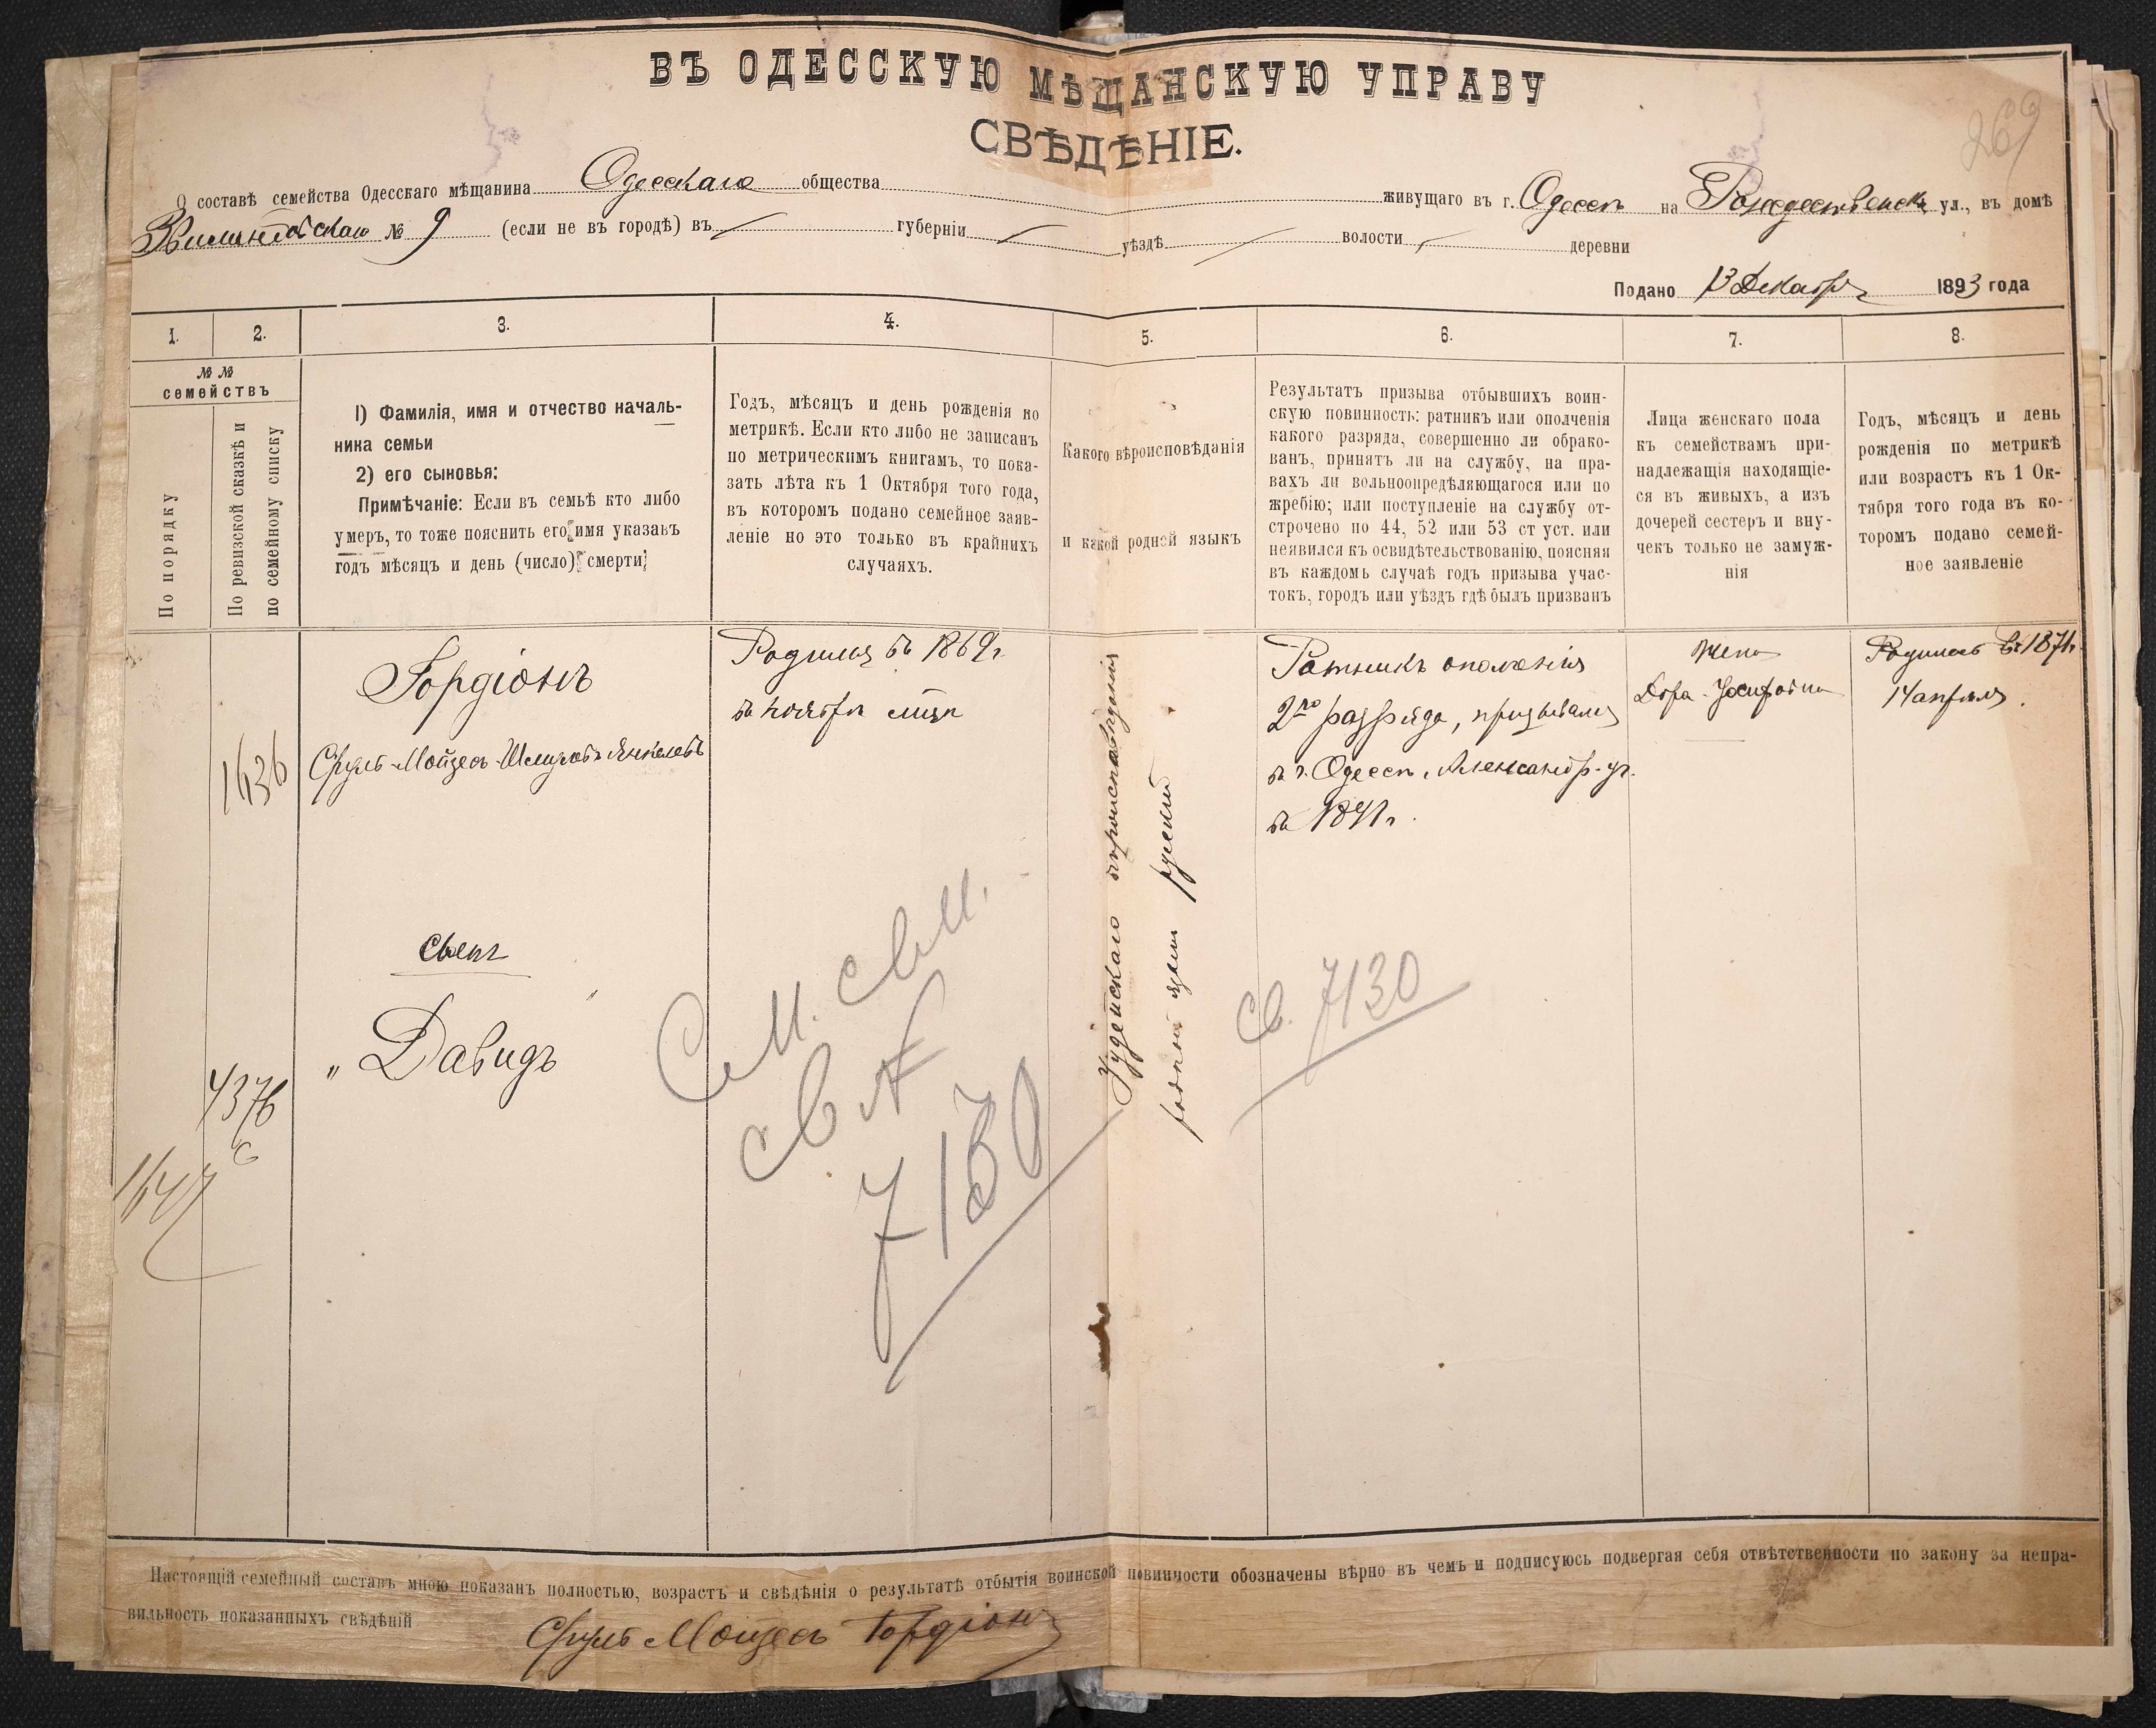 269
ВЪ ОДЕССКУЮ МѢЩАНСКУЮ УПРАВУ
СВѢДѢНІЕ.
О составѣ семейства Одесскаго мѣщанина Одесскаго общества живущаго въ г. Одессѣ на Рождественск. ул., въ домѣ
№ 9 (если не въ городѣ) въ губерніи уѣздѣ волости деревни
Подано 13 Декабр. 1893 года
1. 2. 3. 4. 5. 6. 7. 8.
№№
семействъ
По порядку
По ревизской сказкѣ и
по семейному списку
1) Фамилія, имя и отчество началь-
ника семьи
2) его сыновья:
Примѣчаніе: Если въ семьѣ кто либо
умеръ, то тоже пояснить его имя указавъ
годъ мѣсяцъ и день (число) смерти
Годъ, мѣсяцъ и день рожденія по
метрикѣ. Если кто либо не записанъ
по метрическимъ книгамъ, то пока-
зать лѣта къ 1 Октября того года,
въ которомъ подано семейное заяв-
леніе но это только въ крайнихъ
случаяхъ.
Какого вѣроисповѣданія
и какой родней языкъ
Результатъ призыва отбывшихъ воин-
скую повинность: ратникъ или ополченія
какого разряда, совершенно ли обрако-
ванъ, принятъ ли на службу, на пра-
вахъ ли вольноопредѣляющагося или по
жребію; или поступленіе на службу от-
строчено по 44, 52 или 53 ст уст. или
неявился къ освидѣтельствованію, поясняя
въ каждомъ случаѣ годъ призыва учас-
токъ, городъ или уѣздъ гдѣ былъ призванъ
Лица женскаго пола
къ семействамъ при-
надлежащія находящіе-
ся въ живыхъ, а изъ
дочерей сестеръ и вну-
чекъ только не замуж-
нія
Годъ, мѣсяцъ и день
рожденія по метрикѣ
или возрастъ къ 1 Ок-
тября того года въ ко-
торомъ подано семей-
ное заявленіе
1636
Гордіонъ
Сруль-Мойзесъ-Шмулевъ Янкелевъ
Родился въ 1869 г.
въ ноябрѣ мцѣ
Іудейскаго вѣроисповѣданія
родной языкъ русскій
Ратникъ ополченія
2го разряда, призывался
въ г. Одессѣ, Александр. уч.
въ 1891 г.
Жена
Дора-Іосифовна
Родилась въ 1871 г.
14 апрѣля.
Сынъ
„Давидъ
4376
1647
См. свм.
св №
7130
св. 7130
Настоящій семейный составъ мною показанъ полностью, возрастъ и свѣдѣнія о результатѣ отбытія воинской повинности обозначены вѣрно въ чемъ и подписуюсь подвергая себя отвѣтственности по закону за непра-
вильность показанныхъ свѣдѣній
Сруль Мойзесъ Гордіонъ